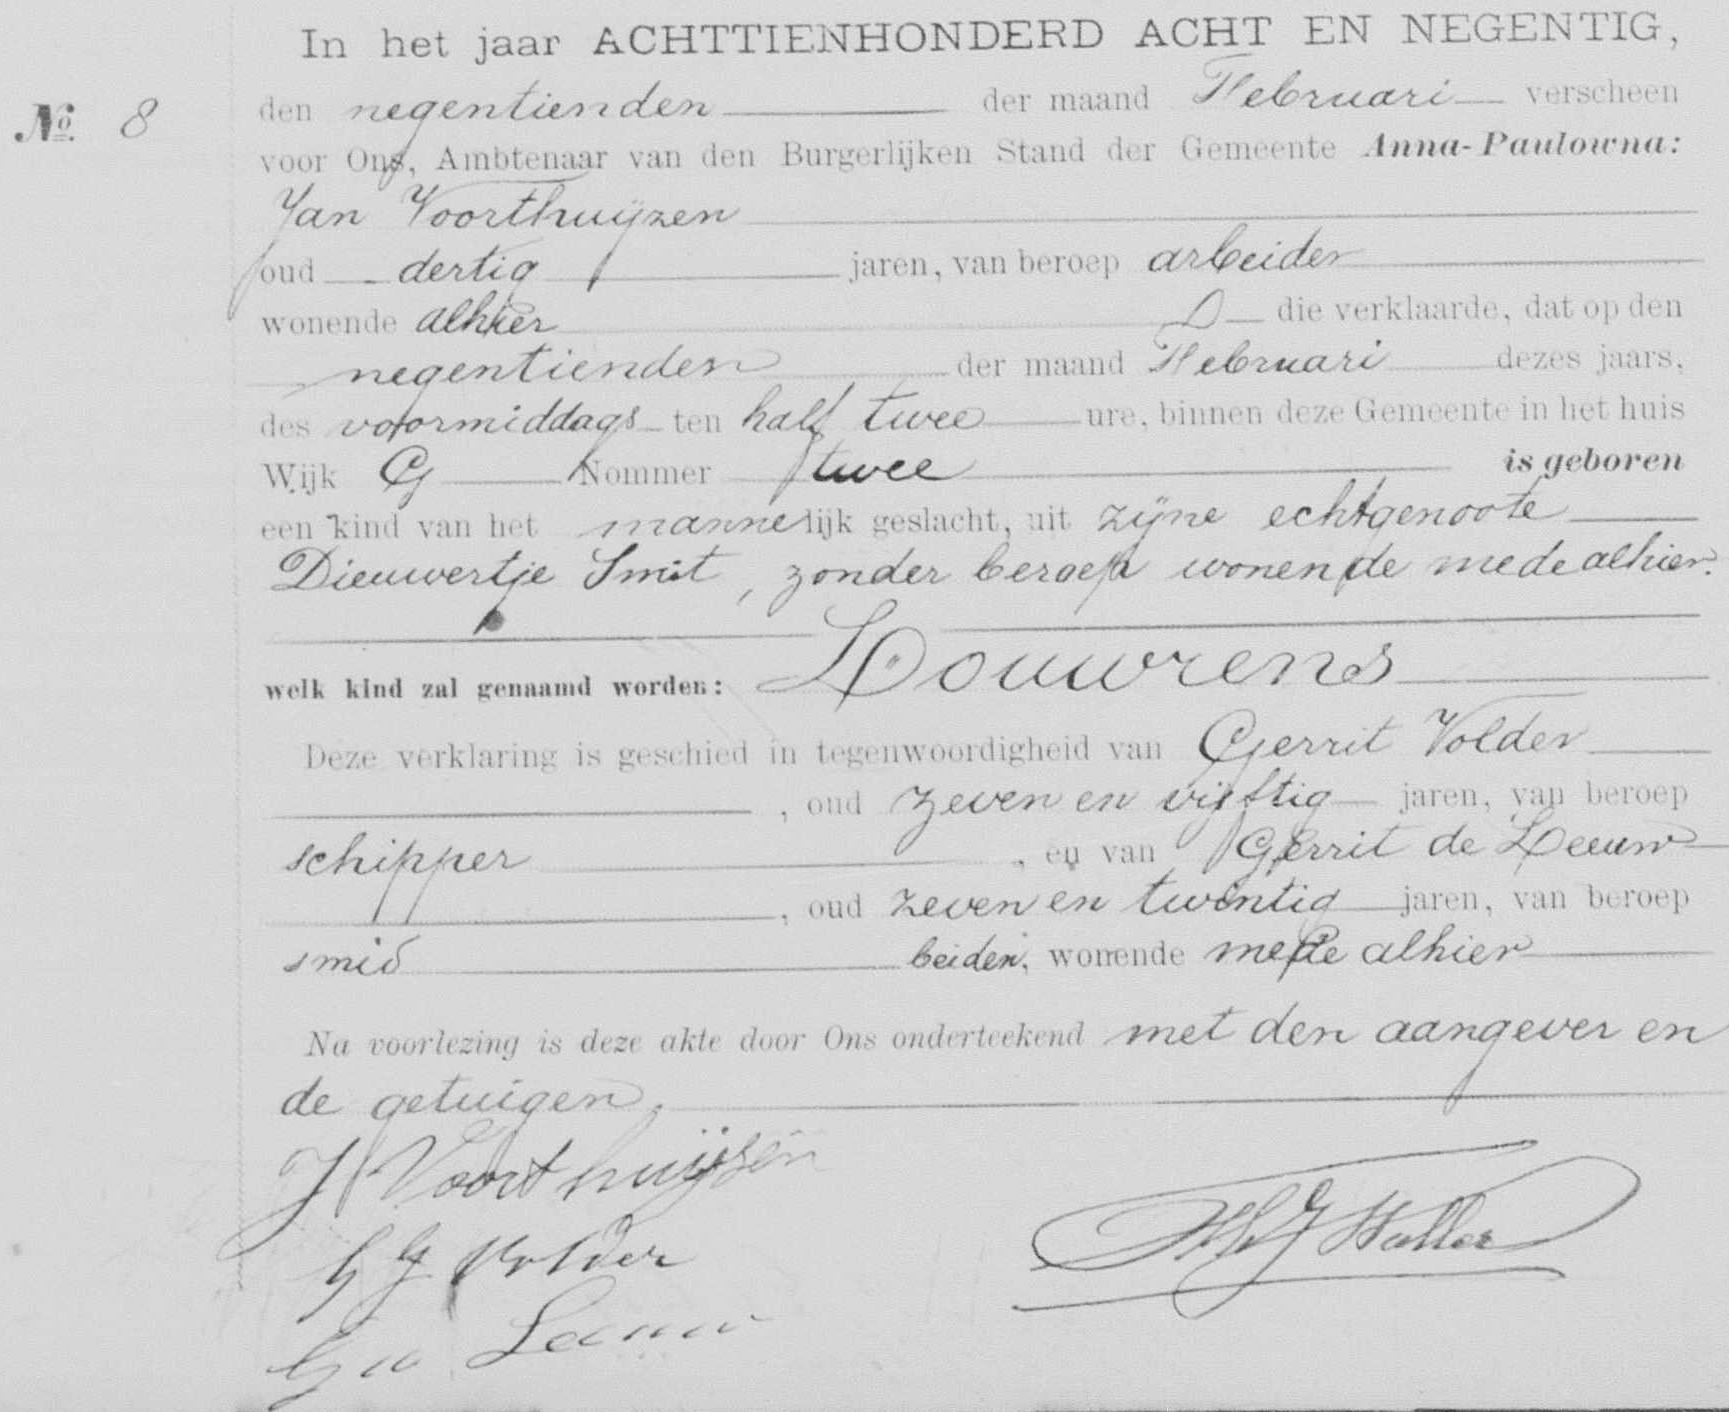 In het jaar ACHTTIENHONDERD ACHT EN NEGENTIG,
No. 8
den negentienden der maand Februari verscheen
voor Ons, Ambtenaar van den Burgerlijken Stand der Gemeente Anna-Paulowna:
Jan Voorthuijzen
oud dertig jaren, van beroep arbeider
wonende alhier die verklaarde, dat op den
negentienden der maand Februari dezes jaars,
des voormiddags ten half twee ure, binnen deze Gemeente in het huis
Wijk G Nommer twee is geboren
een kind van het mannelijk geslacht, uit zijne echtgenoote
Dieuwertje Smit, zonder beroep wonende mede alhier.
welk kind zal genaamd worden: Louwrens
Deze verklaring is geschied in tegenwoordigheid van Gerrit Volder
, oud zeven en vijftig jaren, van beroep
schipper , en van Gerrit de Leeuw
, oud zeven en twintig jaren, van beroep
smid beiden, wonende mede alhier
Na voorlezing is deze akte door Ons onderteekend met den aangever en
de getuigen.
J Voorthuijsen
G J Polder
Leeuw